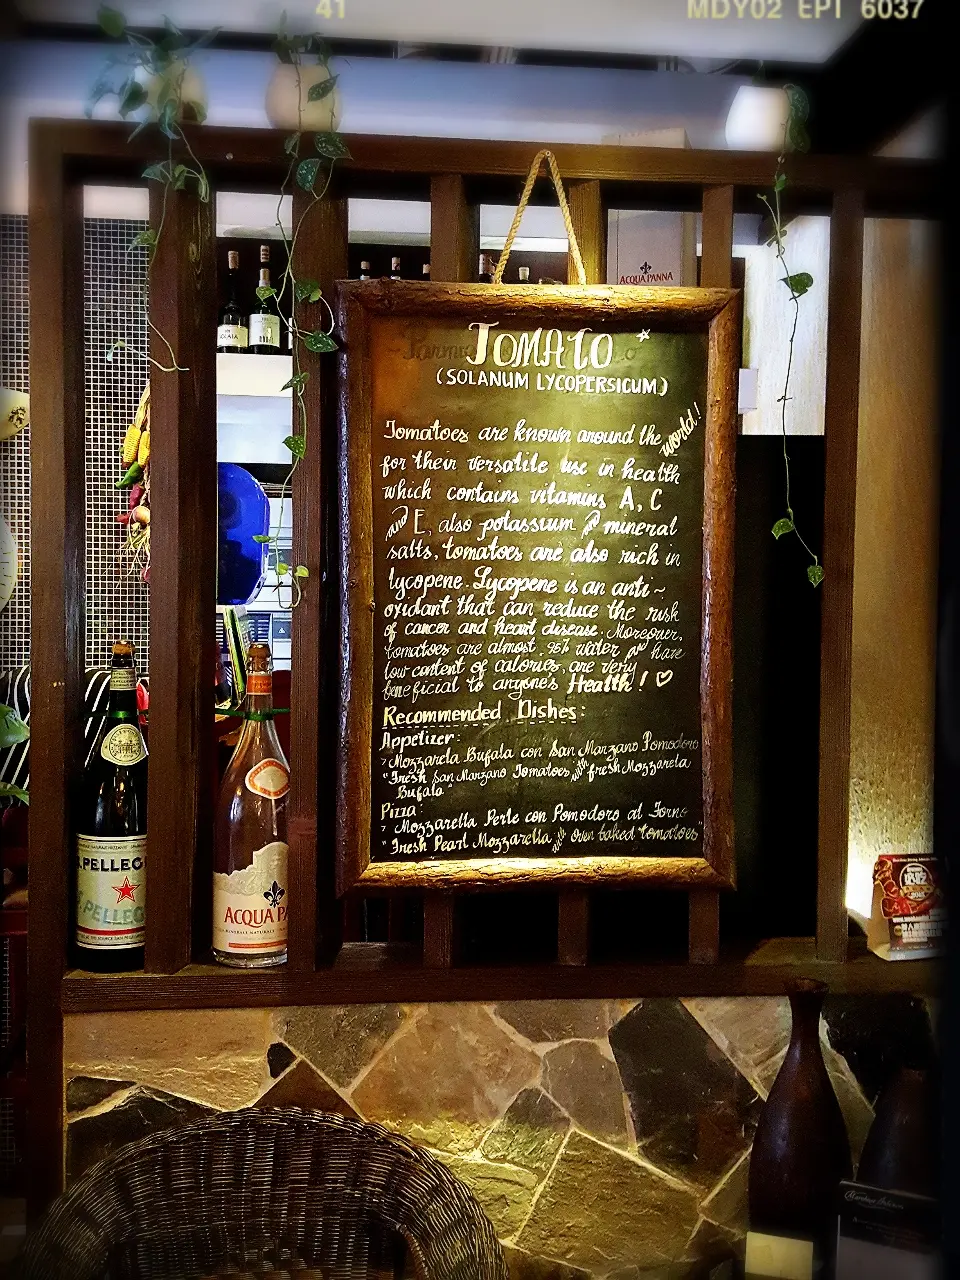 41
MDY02 EPI 6037
ACQUA PANNA
TOMATO *
(SOLANUM LYCOPERSICUM)
Tomatoes are known around the world!
for their versatile use in health
which contains vitamins A, C
and E, also potassium and mineral
salts, tomatoes are also rich in
lycopene. Lycopene is an anti~
oxidant that can reduce the risk
of cancer and heart disease. Moreover,
tomatoes are almost 95% water and have
low content of calories, are very
beneficial to anyone's Health! ♡
Recommended Dishes:
Appetizer:
> Mozzarela Bufala con San Marzano Pomodoro
"Fresh San Marzano Tomatoes with fresh Mozzarela
Bufala"
Pizza:
> Mozzarella Perle con Pomodoro al Forno
"Fresh Pearl Mozzarella with oven baked tomatoes"
S.PELLEG
S.PELLEG
ACQUA PA